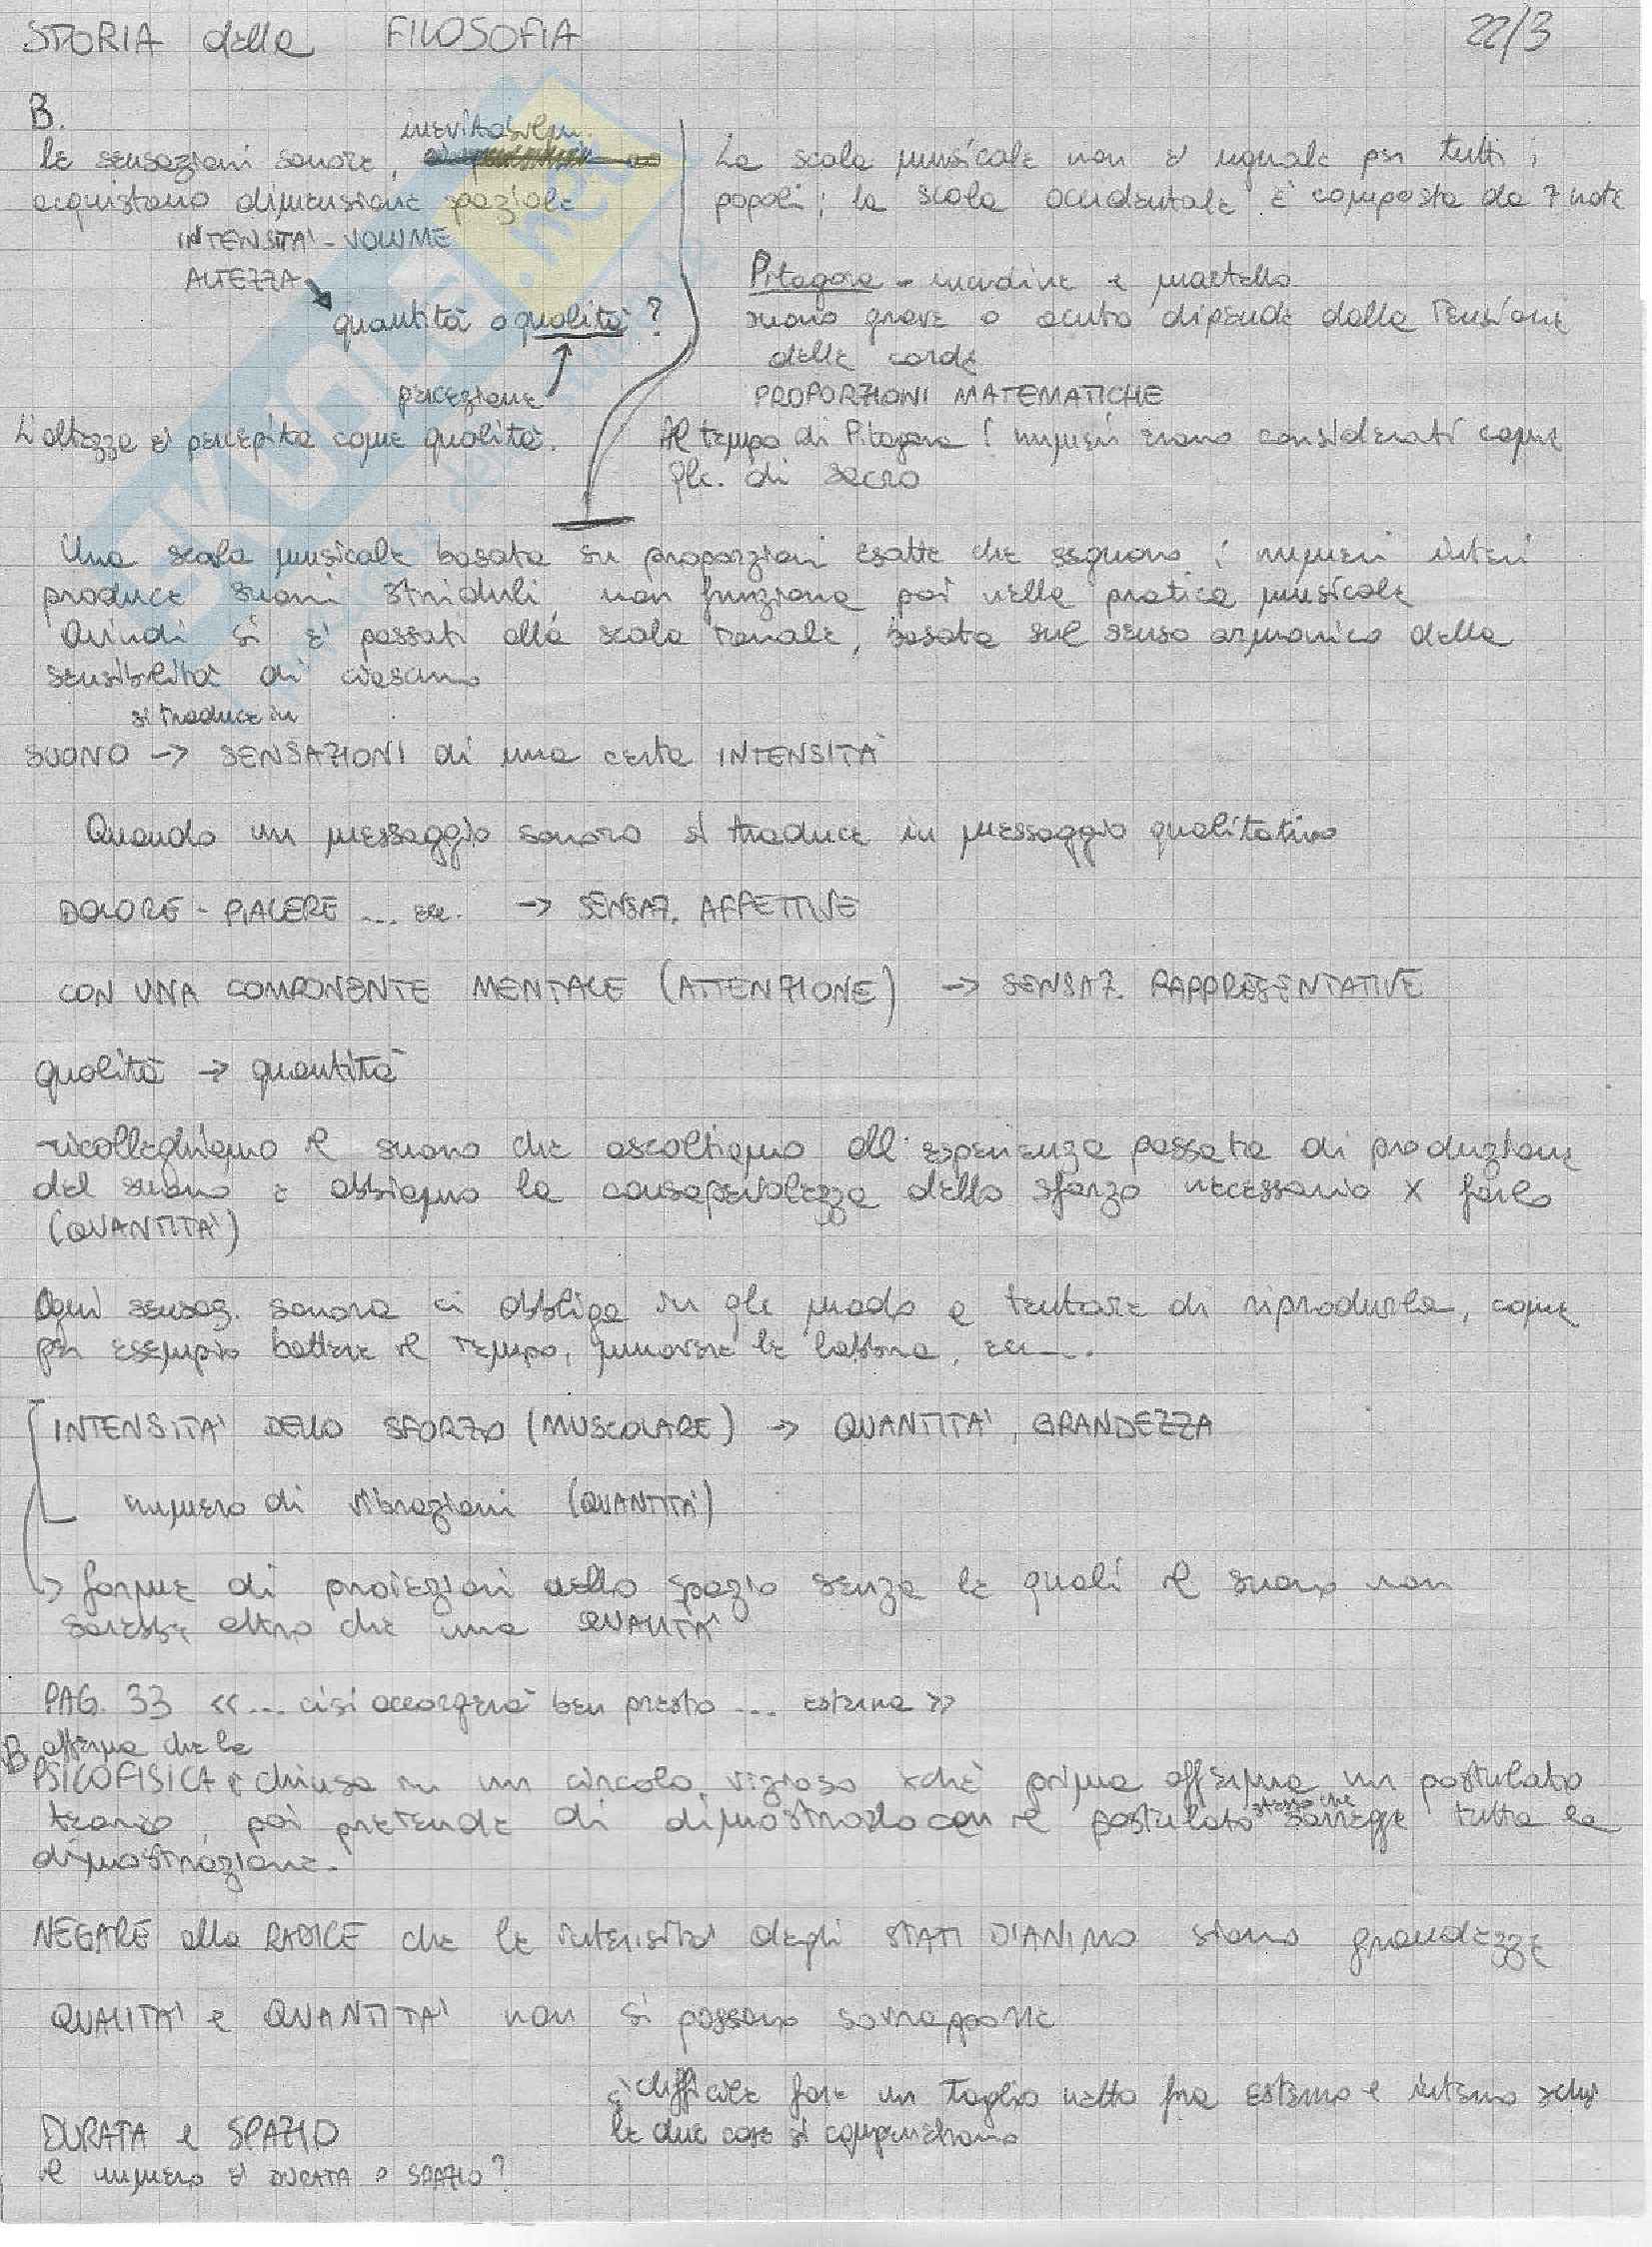 STORIA della FILOSOFIA 22/3
B.
inevitabilm.
le sensazioni sonore,
acquistano dimensione spaziale
INTENSITA' - VOLUME
ALTEZZA
quantità o qualità ?
percezione
L'altezza e' percepita come qualità.
La scala musicale non e' uguale per tutti i
popoli; la scala occidentale è composta da 7 note
Pitagora - incudine e martello
suono grave o acuto dipende dalla tensione
delle corde
PROPORZIONI MATEMATICHE
Al tempo di Pitagora i numeri erano considerati come
qlc. di sacro
Una scala musicale basata su proporzioni esatte che seguono i numeri interi
produce suoni striduli, non funziona poi nella pratica musicale
Quindi si e' passati alla scala tonale, basata sul senso armonico della
sensibilità di ciascuno
si traduce in
SUONO → SENSAZIONI di una certa INTENSITA'
Quando un messaggio sonoro si traduce in messaggio qualitativo
DOLORE - PIACERE ... ecc. → SENSAZ. AFFETTIVE
CON UNA COMPONENTE MENTALE (ATTENZIONE) → SENSAZ. RAPPRESENTATIVE
qualità → quantità
ricolleghiamo il suono che ascoltiamo all'esperienza passata di produzione
del suono e abbiamo la consapevolezza dello sforzo necessario x farlo
(QUANTITA')
Ogni sensaz. sonora ci obbliga in qlc modo a tentare di riprodurla, come
per esempio battere il tempo, muovere le labbra, ecc....
INTENSITA' DELLO SFORZO (MUSCOLARE) → QUANTITA', GRANDEZZA
numero di vibrazioni (QUANTITA')
→ forme di proiezioni dello spazio senza le quali il suono non
sarebbe altro che una QUALITA'
PAG. 33 «... ci si accorgerà ben presto ... esterna»
B. afferma che la
PSICOFISICA è chiusa in un circolo vizioso xchè prima afferma un postulato
teorico, poi pretende di dimostrarlo con il postulato stesso che sorregge tutta la
dimostrazione.
NEGARE alla RADICE che le intensità degli STATI D'ANIMO siano grandezze
QUALITA' e QUANTITA' non si possono sovrapporre
e' difficile fare un taglio netto fra esterno e interno xchè
le due cose si compenetrano
DURATA e SPAZIO
il numero e' DURATA o SPAZIO?